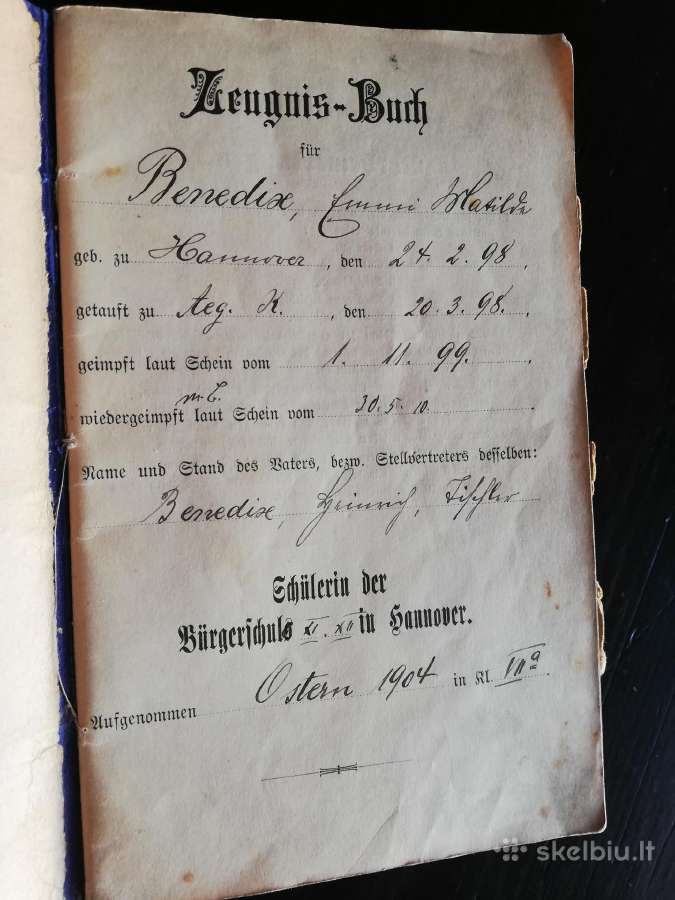 Zeugnis-Buch
für
Benedix, Emmi Matilde
geb. zu Hannover, den 24. 2. 98.
getauft zu Aeg. K., den 20. 3. 98.
geimpft laut Schein vom 1. 11. 99.
wiedergeimpft laut Schein vom 20. 5. 10.
Name und Stand des Vaters, bezw. Stellvertreters desselben:
Benedix, Heinrich, Tischler
Schülerin der
Bürgerschule XI. XII in Hannover.
Aufgenommen Ostern 1904 in Kl. VII a.
skelbiu.lt